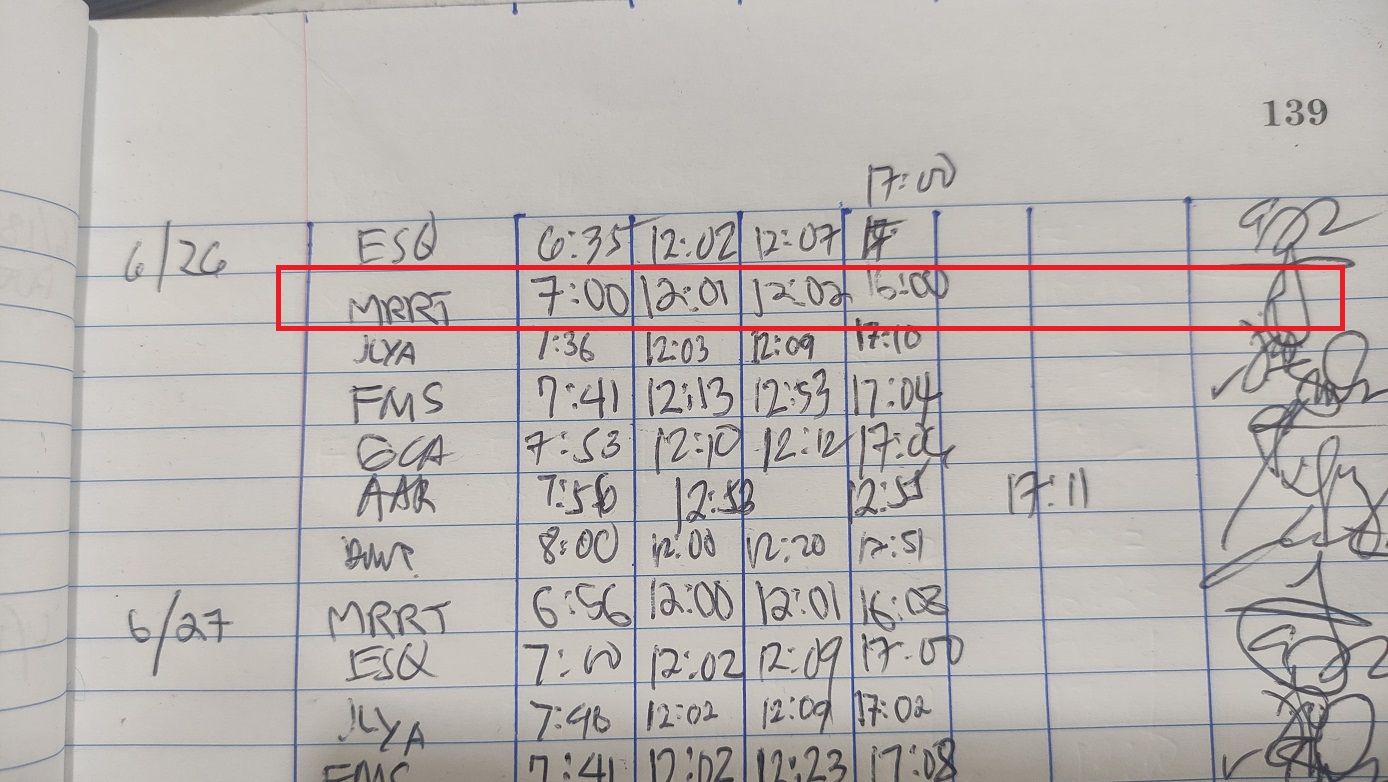 139
17:00
6/26 ESQ 6:35 12:02 12:07 17
MRRT 7:00 12:01 12:02 16:00
JLYA 7:36 12:03 12:09 17:10
FMS 7:41 12:13 12:53 17:04
GCA 7:53 12:10 12:12 17:04
AAR 7:56 12:53 12:55 17:11
8:00 12:00 12:20 17:51
6/27 MRRT 6:56 12:00 12:01 16:03
ESQ 7:00 12:02 12:09 17:00
JLYA 7:46 12:02 12:09 17:02
FMS 7:41 12:02 12:23 17:08